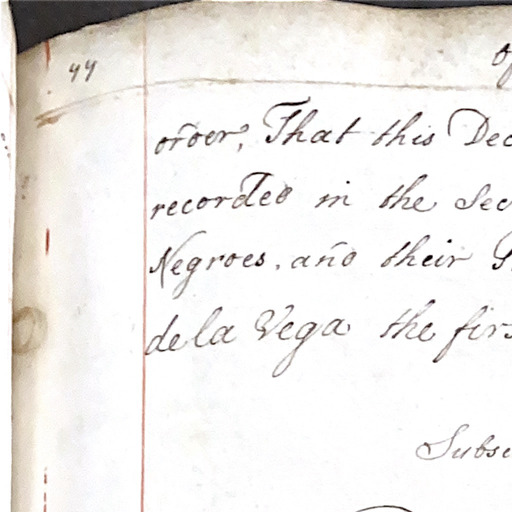 44
order, That this Dec
recorded in the Sec
Negroes, and their
de la Vega the firs
Subsc